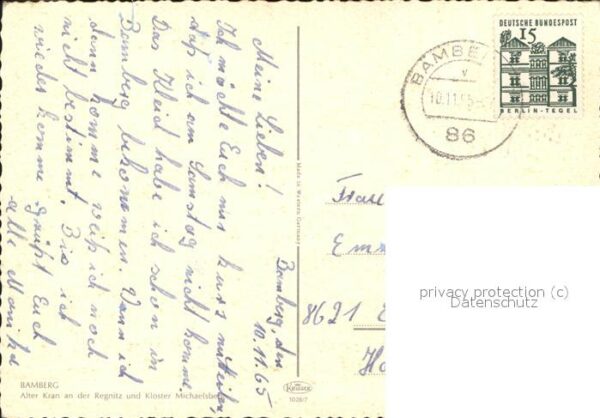 Bamberg, den
10.11.65
Meine Lieben!
Ich möchte Euch nur kurz mitteilen,
daß ich am Samstag nicht komme.
Das Kleid habe ich schon in
Bamberg bekommen. Wann ich
dann komme weiß ich noch
nicht bestimmt. Bis ich
wieder komme grüßt Euch
alle Monika
DEUTSCHE BUNDESPOST
15
BERLIN-TEGEL
BAMBE
10.11.65
86
Frau
8621
privacy protection (c)
Datenschutz
Made in Western Germany
Krüger
1028/7
BAMBERG
Alter Kran an der Regnitz und Kloster Michaelsberg